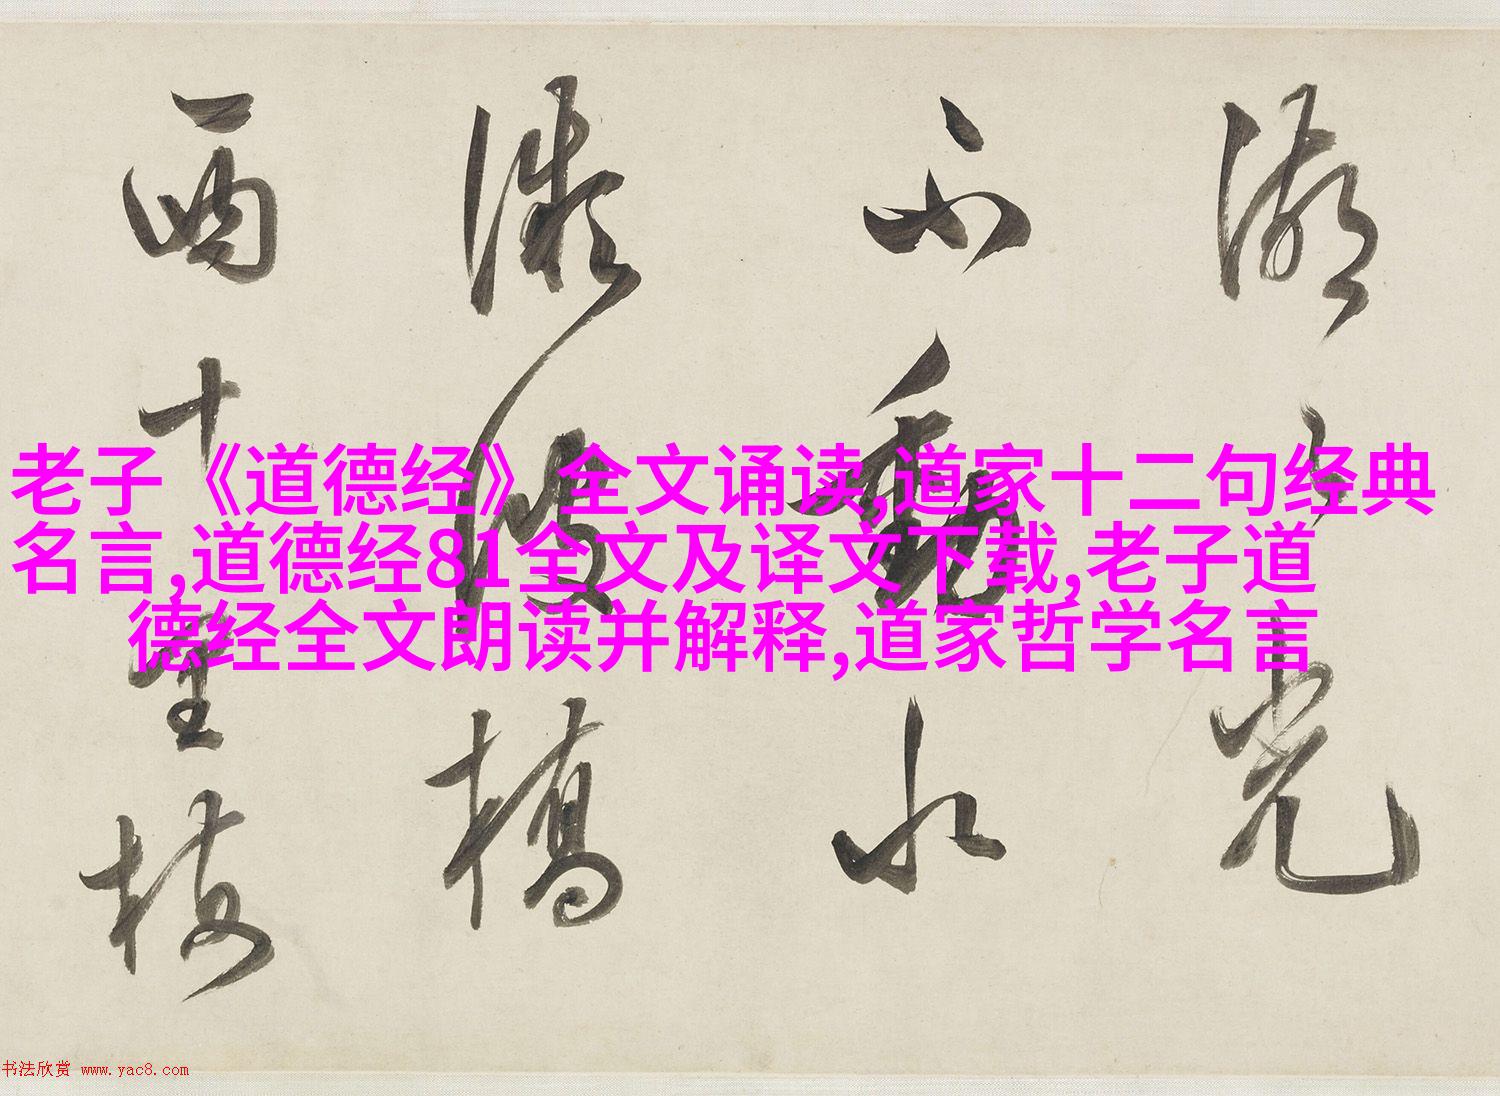 湖上光
不動水
微波橋
西十里梅
老子《道德经》全文诵读,道家十二句经典
名言,道德经81全文及译文下载,老子道
德经全文朗读并解释,道家哲学名言
书法欣赏 www.yac8.com